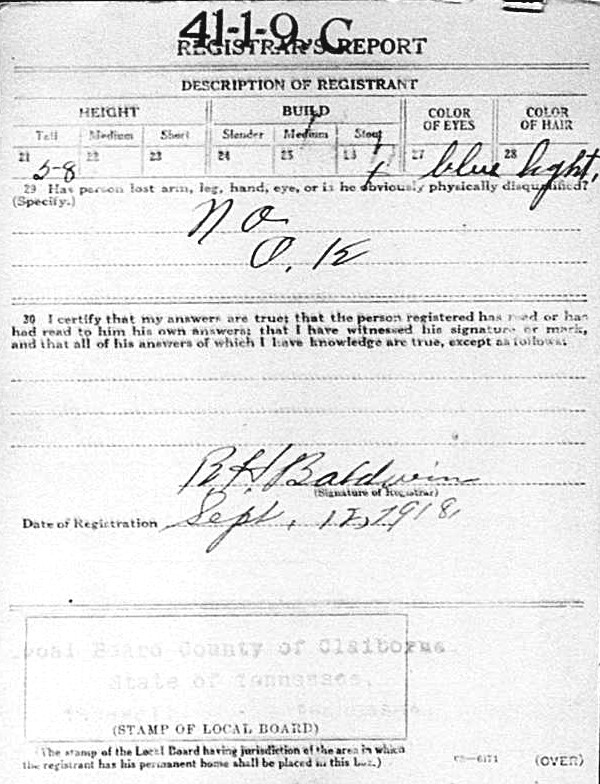 41-1-9. C
REGISTRAR'S REPORT
DESCRIPTION OF REGISTRANT
HEIGHT BUILD COLOR OF EYES COLOR OF HAIR
Tall Medium Short Slender Medium Stout
21 5-8 22 23 24 25 26 27 blue 28 light,
29 Has person lost arm, leg, hand, eye, or is he obviously physically disqualified?
(Specify.)
No
O. K
30 I certify that my answers are true; that the person registered has read or has
had read to him his own answers; that I have witnessed his signature or mark,
and that all of his answers of which I have knowledge are true, except as follows:
R H Baldwin
(Signature of Registrar)
Date of Registration Sept, 12, 1918,
Local Board County of Claiborne
State of Tennessee,
(STAMP OF LOCAL BOARD)
(The stamp of the Local Board having jurisdiction of the area in which
the registrant has his permanent home shall be placed in this box.)
(OVER)